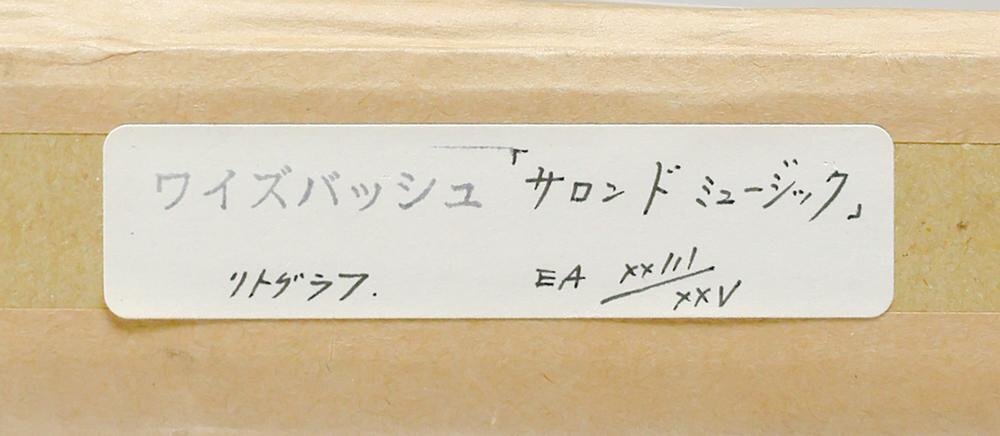 ワイズバッシュ「サロンド ミュージック」
リトグラフ. EA xxIII/xxV